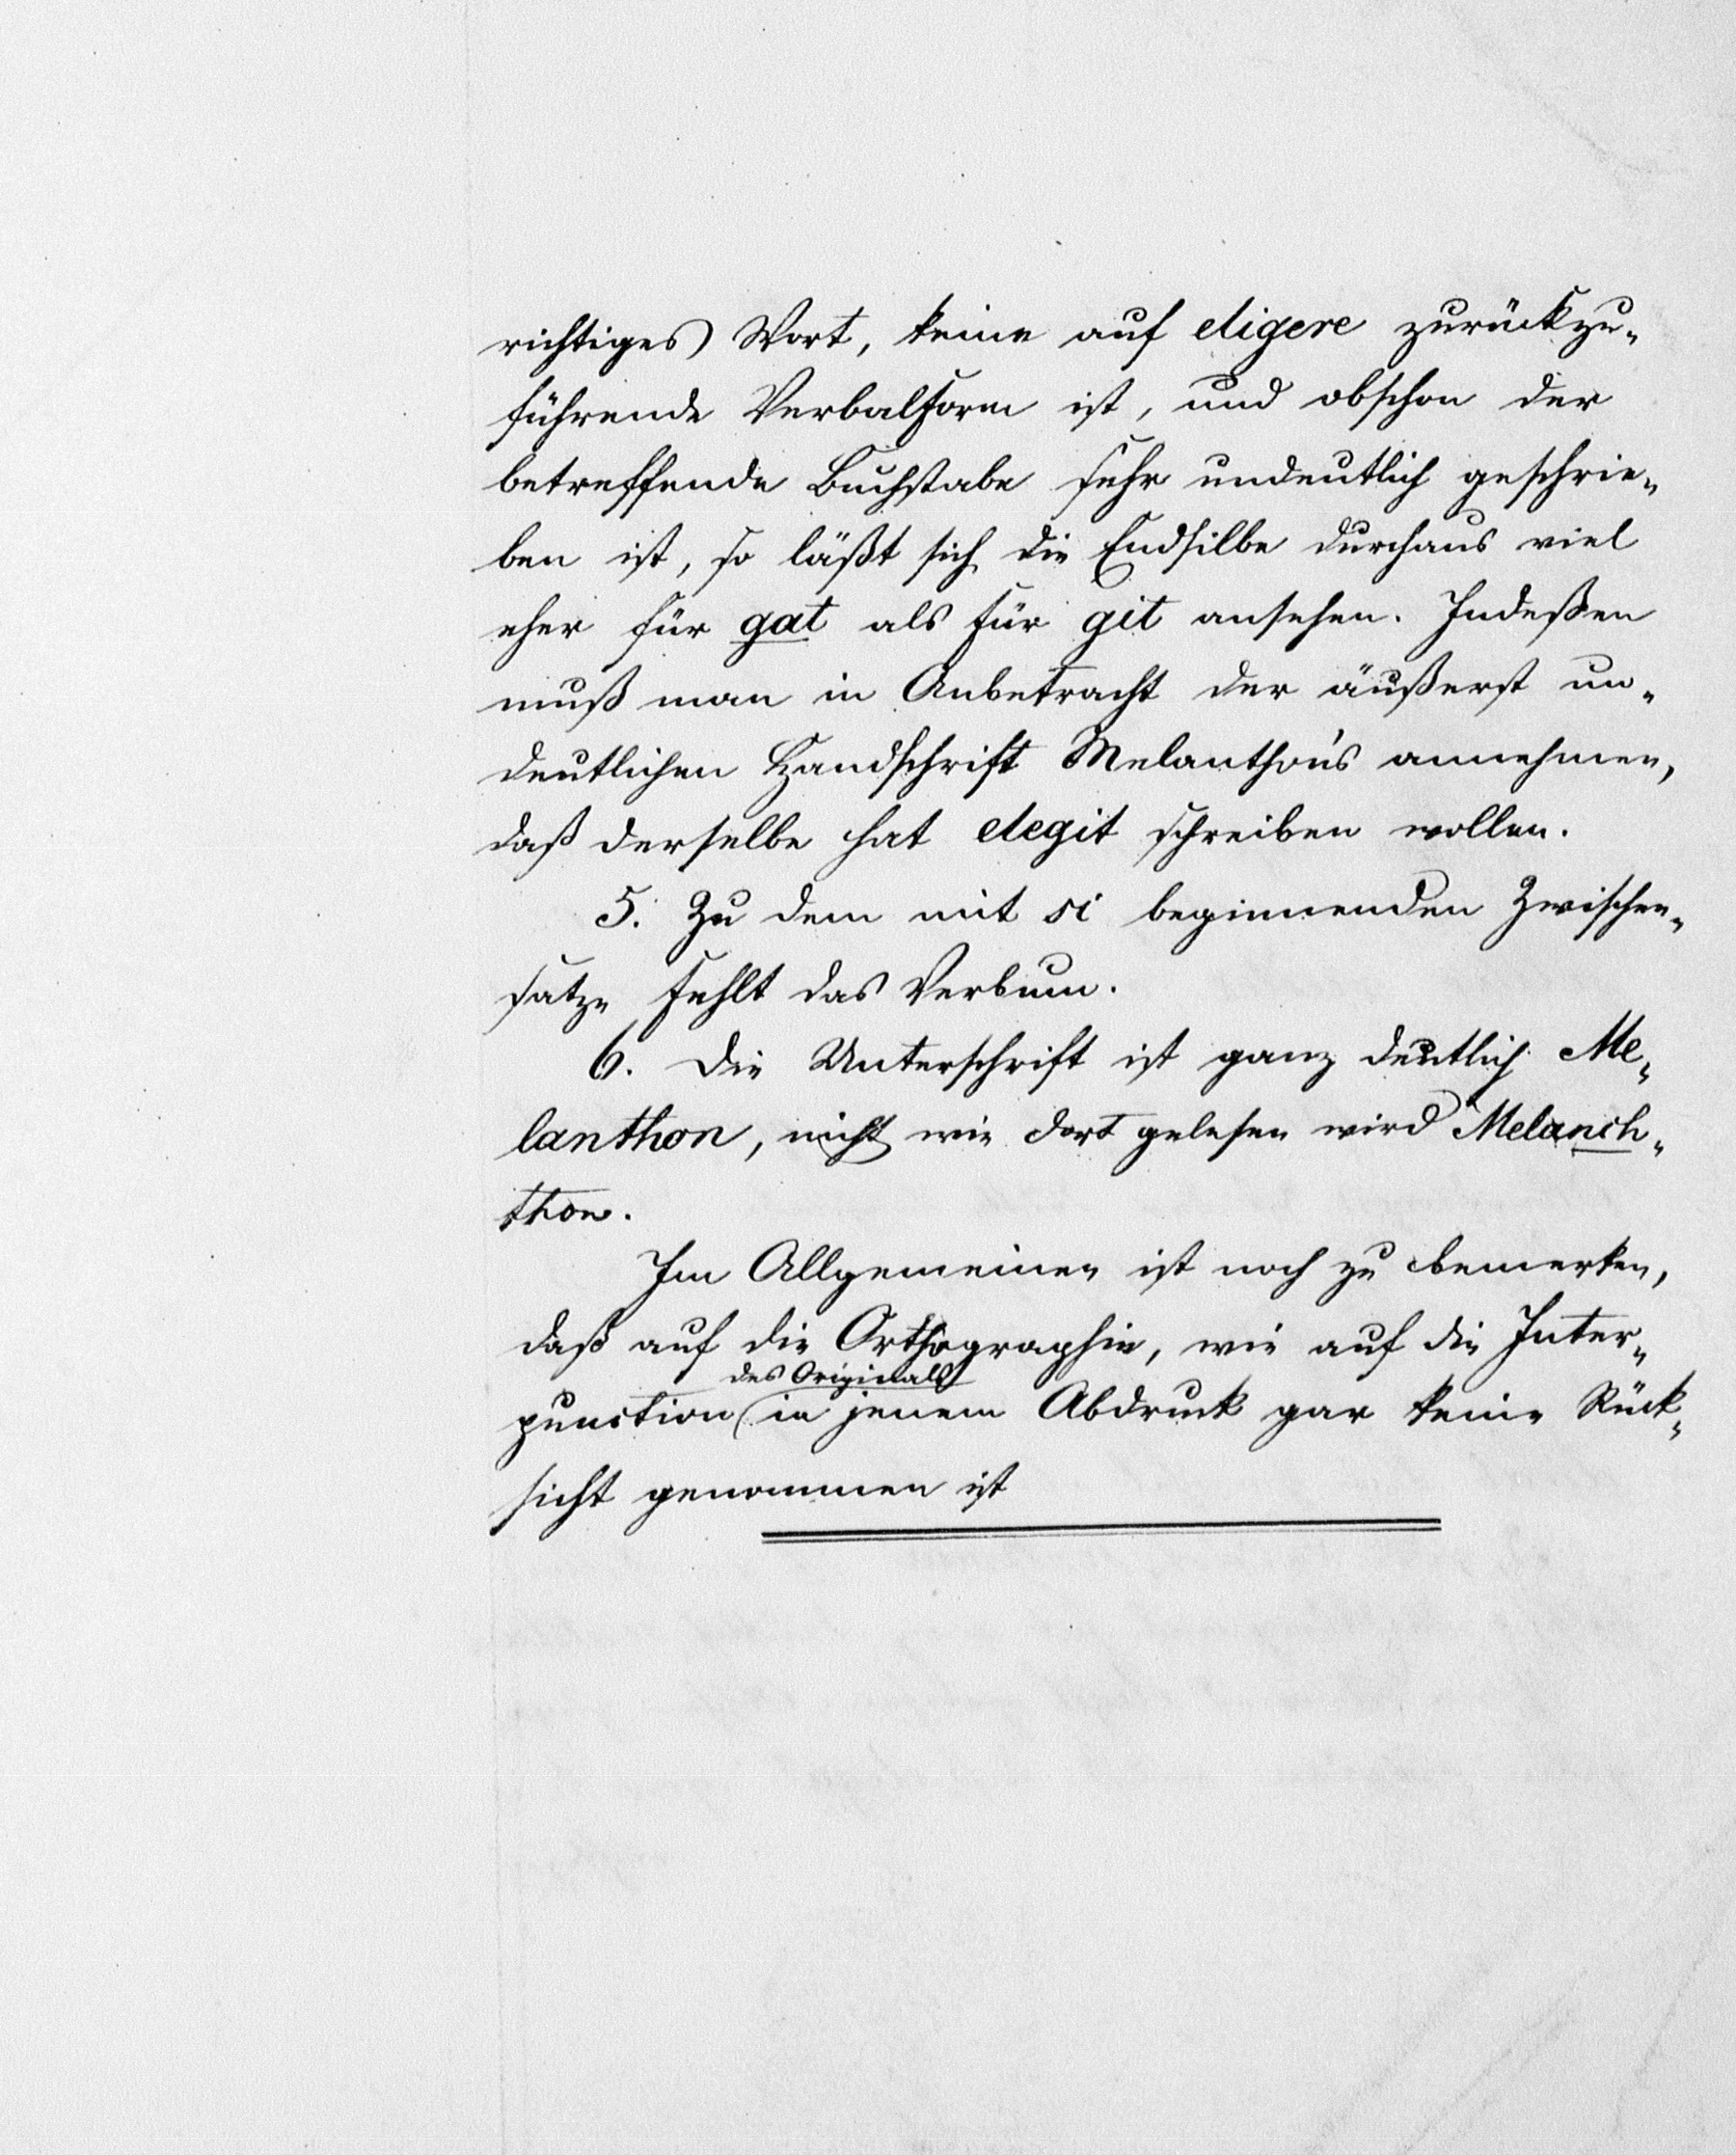 richtiges Wort, keine auf eligere zurückzu-
führende Verbalform ist, und obschon der
betreffende Buchstabe sehr undeutlich geschrie-
ben ist, so läßt sich die Endsilbe durchaus viel
eher für gat als für git ansehen. Indeßen
muß man in Anbetracht der äußerst un-
deutlichen Handschrift Melanthon's annehmen,
daß derselbe hat elegit schreiben wollen.
5. Zu dem mit si beginnenden Zwischen-
satze fehlt das Verbum.
6. Die Unterschrift ist ganz deutlich Me-
lanthon, nicht wie dort gelesen wird Melanch-
thon.
Im Allgemeinen ist noch zu bemerken,
daß auf die Orthographie, wie auf die Inter-
des Originals
punction in jenem Abdruck gar keine Rück-
sicht genommen ist